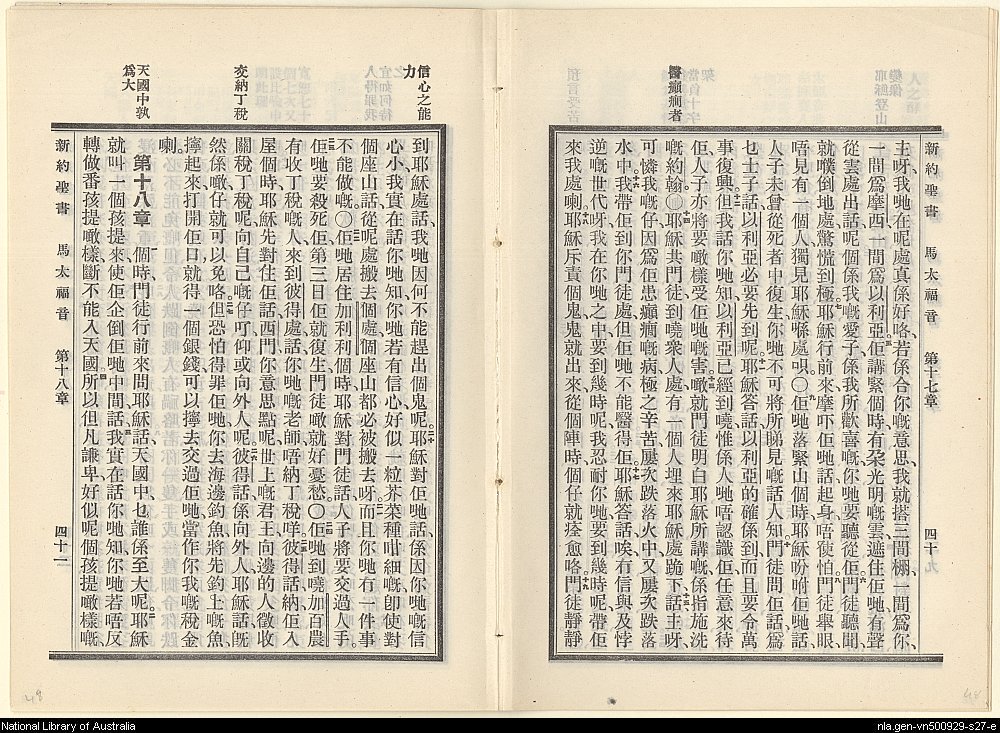 新約聖書 馬太福音 第十七章
主呀我哋在呢處真係好咯若係合你嘅意思我就搭三間棚一間爲你
一間爲摩西一間爲以利亞佢講緊個時有朵光明嘅雲遮住佢哋有聲
從雲處出話呢個係我嘅愛子係我所歡喜嘅你哋要聽從佢門徒聽聞
就噗倒地處驚慌到極耶穌行前來摩吓佢哋話起身唔使怕門徒舉眼
唔見有一個人獨見耶穌喺處唄〇佢哋落緊山個時耶穌吩咐佢哋話
人子未曾從死者中復生你哋不可將所睇見嘅話人知門徒問佢話爲
乜士子話以利亞必要先到呢耶穌答話以利亞的確係到而且要令萬
事復興但我話你哋知以利亞已經到嘵惟係人哋唔認識佢任意來待
佢人子亦將要噉樣受佢哋嘅害噉就門徒明白耶穌所講嘅係指施洗
嘅約翰〇耶穌共門徒到嘵衆人處有一個人埋來耶穌處跪下話主呀
可憐我嘅仔因爲佢患癲癇嘅病極之辛苦屢次跌落火中又屢次跌落
水中我帶佢到你門徒處但佢哋不能醫得佢耶穌答話唉冇信與及悖
逆嘅世代呀我在你哋之中要到幾時呢我忍耐你哋要到幾時呢帶佢
來我處喇耶穌斥責個鬼鬼就出來從個陣時個仔就痊愈咯門徒靜靜
醫癲癇者
信心之能力
交納丁稅
天國中孰爲大
到耶穌處話我哋因何不能趕出個鬼呢耶穌對佢哋話係因你哋嘅信
心小我實在話你哋知你哋若有信心好似一粒芥菜種咁細嘅卽使對
個座山話從呢處搬去個處個座山都必被搬去呀而且你哋冇一件事
不能做嘅〇佢哋居住加利利個時耶穌對門徒話人子將要交過人手
佢哋要殺死佢第三日佢就復生門徒噉就好憂愁〇佢哋到嘵加百農
有收丁稅嘅人來到彼得處話你哋嘅老師唔納丁稅咩彼得話納佢入
屋個時耶穌先對住佢話西門你意思點呢世上嘅君王向邊的人徵收
關稅丁稅呢向自己嘅仔可仰或向外人呢彼得話係向外人耶穌話旣
然係噉仔就可以免咯但恐怕得罪佢哋你去海邊釣魚將先釣上嘅魚
擰起來打開佢口就得一個銀錢可以擰去交過佢哋當作你我嘅稅金
喇
第十八章 個時門徒行前來問耶穌話天國中乜誰係至大呢耶穌
就叫一個孩提來使佢企倒佢哋中間話我實在話你哋知你哋若唔反
轉做番孩提噉樣斷不能入天國所以但凡謙卑好似呢個孩提噉樣嘅
新約聖書 馬太福音 第十八章
National Library of Australia
nla.gen-vn500929-s27-e